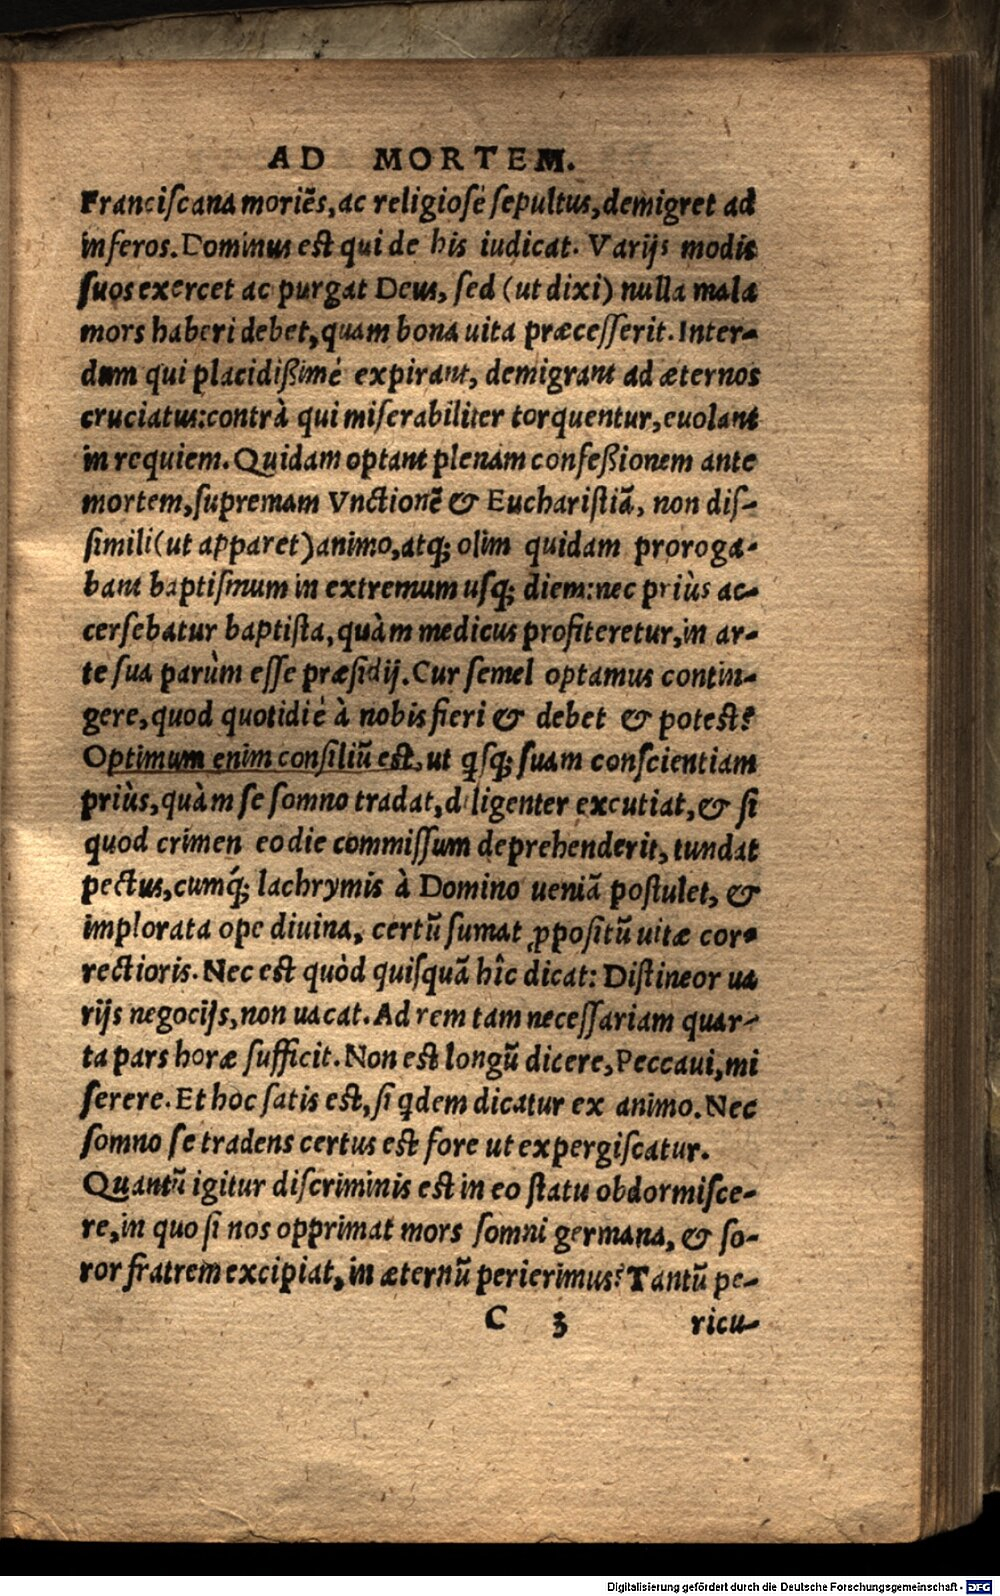 AD MORTEM.
Franciscana moriẽs, ac religiosè sepultus, demigret ad
inferos. Dominus est qui de his iudicat. Varijs modis
suos exercet ac purgat Deus, sed (ut dixi) nulla mala
mors haberi debet, quam bona uita præcesserit. Inter-
dum qui placidißimè expirant, demigrant ad æternos
cruciatus: contrà qui miserabiliter torquentur, euolant
in requiem. Quidam optant plenam confeßionem ante
mortem, supremam Vnctionẽ & Eucharistiã, non dis-
simili (ut apparet) animo, atq; olim quidam proroga-
bant baptismum in extremum usq; diem: nec priùs ac-
cersebatur baptista, quàm medicus profiteretur, in ar-
te sua parùm esse præsidij. Cur semel optamus contin-
gere, quod quotidiè à nobis fieri & debet & potest?
Optimum enim consiliũ est, ut qsq; suam conscientiam
priùs, quàm se somno tradat, diligenter excutiat, & si
quod crimen eo die commissum deprehenderit, tundat
pectus, cumq́; lachrymis à Domino ueniã postulet, &
implorata ope diuina, certũ sumat ꝓpositũ uitæ cor-
rectioris. Nec est quòd quisquã hîc dicat: Distineor ua
rijs negocijs, non uacat. Ad rem tam necessariam quar-
ta pars horæ sufficit. Non est longũ dicere, Peccaui, mi
serere. Et hoc satis est, si qdem dicatur ex animo. Nec
somno se tradens certus est fore ut expergiscatur.
Quantũ igitur discriminis est in eo statu obdormisce-
re, in quo si nos opprimat mors somni germana, & so-
ror fratrem excipiat, in æternũ perierimus? Tantũ pe-
C 3 ricu-
Digitalisierung gefördert durch die Deutsche Forschungsgemeinschaft - DFG